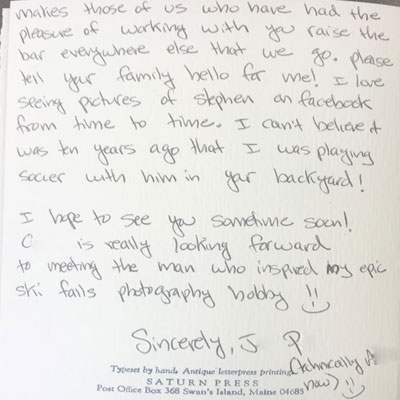 makes those of us who have had the
pleasure of working with you raise the
bar everywhere else that we go. please
tell your family hello for me! I love
seeing pictures of Stephen on facebook
from time to time. I can't believe it
was ten years ago that I was playing
soccer with him in your backyard!
I hope to see you sometime soon!
C is really looking forward
to meeting the man who inspired my epic
ski falls photography hobby :)
Sincerely, J P
(technically A
now) :)
Typeset by hand. Antique letterpress printing.
SATURN PRESS
Post Office Box 368 Swan's Island, Maine 04685